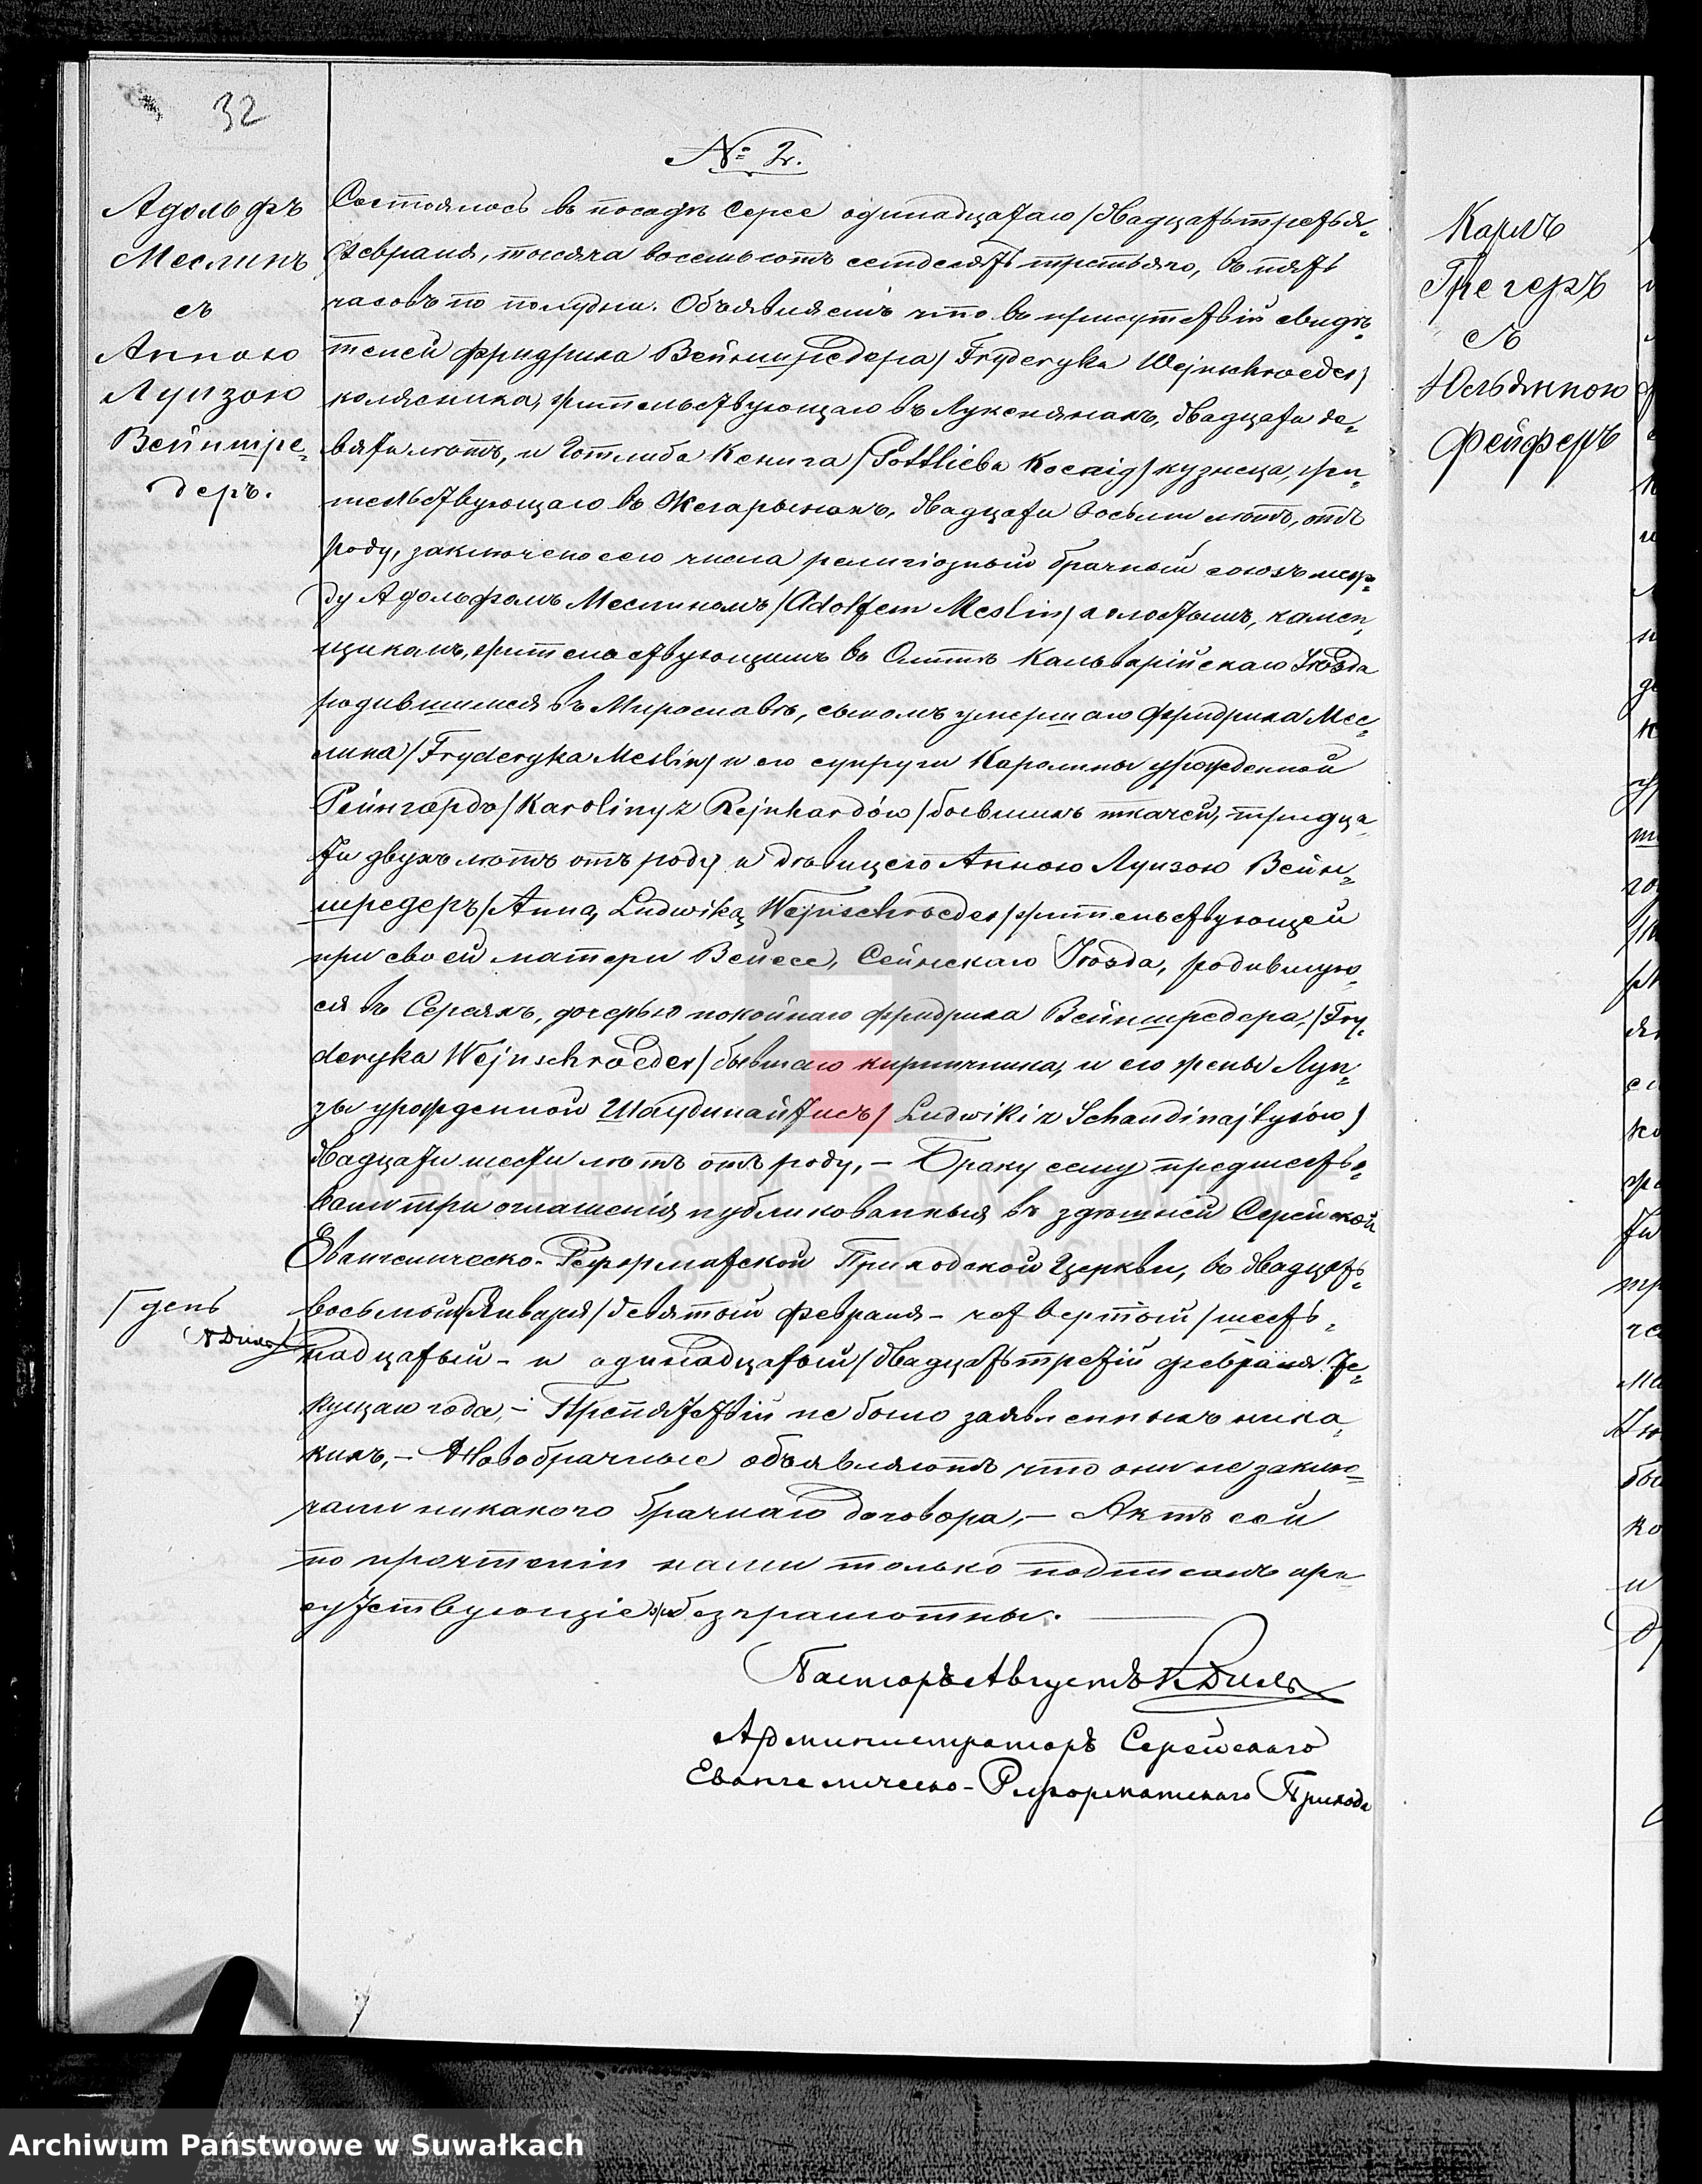 32
№ 2.
Адольфъ
Меслинъ
съ
Анною
Луизою
Вейншре-
деръ.
Состоялось въ посадѣ Сереѣ одинадцатаго /двадцатьтретья-
Февраля, тысяча восемьсотъ семдесятъ третьяго, въ пять
часовъ по полудни. Объявляемъ что въ присутствій свидѣ-
телей Фридриха Вейншредера /Fryderyka Wejnschroeder/
колясника, жительствующаго въ Луксняхъ, двадцати де-
вяти лѣтъ, и Готлиба Кенига /Gottlieba Koenig/ кузнеца, жи-
тельствующаго въ двадцати восьми лѣтъ, отъ
роду, заключено сего числа религіозный брачный союзъ меж-
ду Адольфомъ Меслиномъ /Adolfem Meslin/ холостымъ, камен-
щикомъ, жительствующимъ въ Олитѣ Кальварійскаго Уѣзда
родившимся въ Мирославѣ, сыномъ умершаго Фридриха Мес-
лина /Fryderyka Meslin/ и его супруги Каролины урожденной
Рейнгардъ /Karoliny z Rejnhardów/ бывшихъ ткачей, тридца-
ти двухъ лѣтъ отъ роду и дѣвицею Анною Луизою Вейн-
шредеръ /Anną Ludwiką Wejnschroeder/ жительствующей
при своей матери Сейнскаго Уѣзда, родившую-
ся въ Сереяхъ, дочерью покойнаго Фридриха Вейншредера, /Fry-
deryka Wejnschroeder/ бывшаго кирпичника, и его жены Луи-
зы урожденной Шаудинайтисъ /Ludwiki z Schaudinajtysów/
двадцати шести лѣтъ отъ роду, – Браку сему предшество-
вали три оглашенія публикованныя въ здѣшней Серейской
Евангелическо-Реформатской Приходской Церкви, въ двадцать
восьмый Января /девятый Февраля – четвертый /шест-
надцатый – и одинадцатый /двадцатьтретій Февраля те-
кущаго года, – Препятствій не было заявленныхъ ника-
кихъ, – Новобрачные объявляютъ что они не заклю-
чали никакого брачнаго договора, – Актъ сей
по прочтеніи нами только подписанъ при-
сутствующіе безграмотны.
день
К Диль
Пасторъ Августъ К Диль
Администраторъ Серейскаго
Евангелическо-Реформатскаго Прихода
Карлъ
Грегеръ
съ
Юльянною
Фейферъ
ARCHIWUM PAŃSTWOWE
W SUWAŁKACH
Archiwum Państwowe w Suwałkach